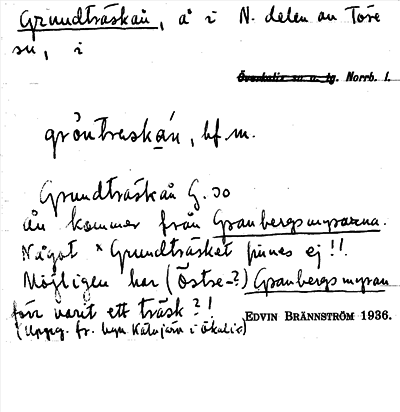 Grundträskån, å i N. delen av Töre
sn, i
Överkalix sn o. tg. Norrb. l.
gröntraskán, bf. m.
Grundträskån G. 30
ån kommer från Granbergsmyrarna.
Något × Grundträsket finnes ej!!.
Möjligen har (Östre-?) Granbergsmyran
förr varit ett träsk?!
(uppg. fr. byn Kätajärv i Ökalix)
EDVIN BRÄNNSTRÖM 1936.